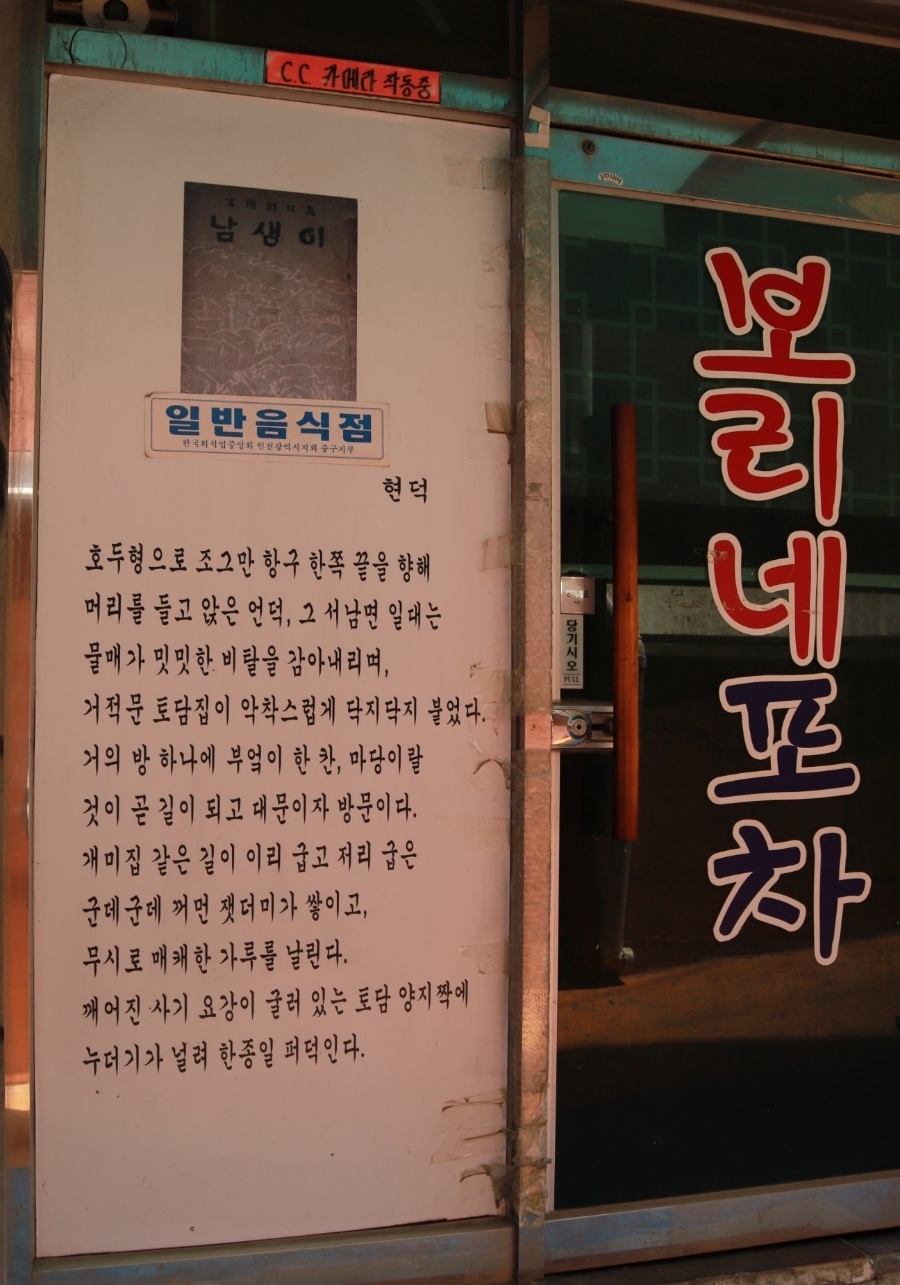 C.C. 카메라 작동중
남생이
일반음식점
한국외식업중앙회 인천광역시지회 중구지부
현덕
호두형으로 조그만 항구 한쪽 끝을 향해
머리를 들고 앉은 언덕, 그 서남면 일대는
물매가 밋밋한 비탈을 감아내리며,
거적문 토담집이 악착스럽게 닥지닥지 붙었다.
거의 방 하나에 부엌이 한 칸, 마당이랄
것이 곧 길이 되고 대문이자 방문이다.
개미집 같은 길이 이리 굽고 저리 굽은
군데군데 꺼먼 잿더미가 쌓이고,
무시로 매캐한 가루를 날린다.
깨어진 사기 요강이 굴러 있는 토담 양지짝에
누더기가 널려 한종일 퍼덕인다.
당기시오
PULL
보리네포차